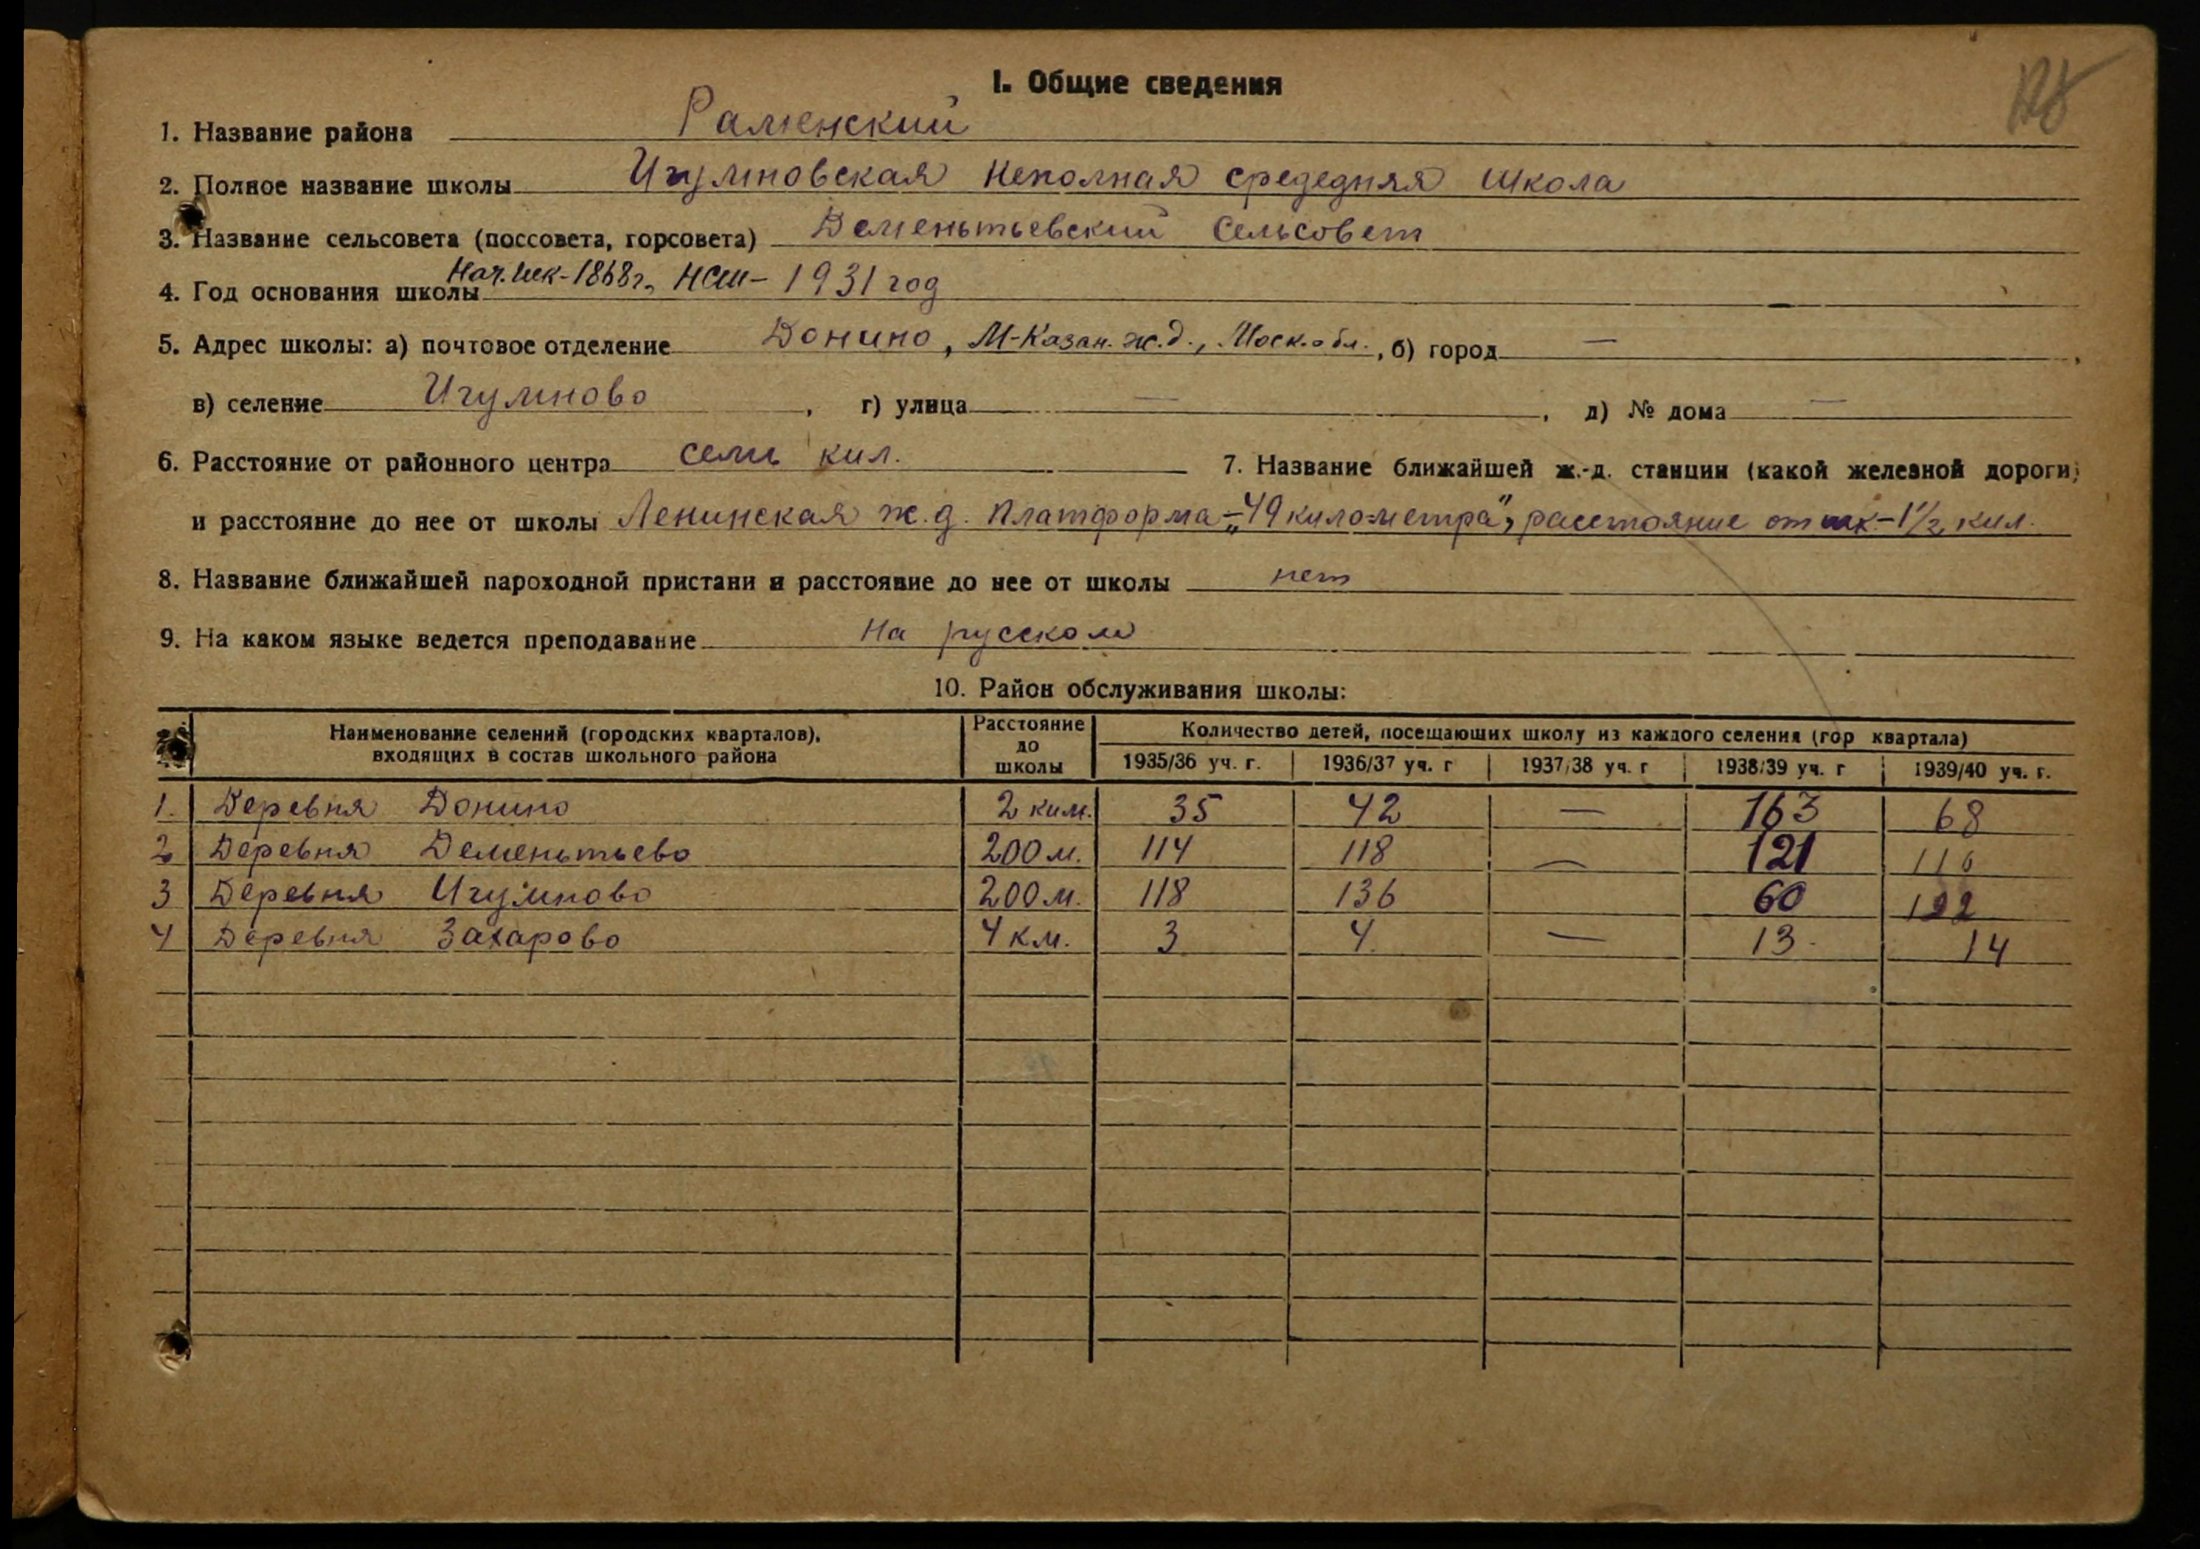 I. Общие сведения
1. Название района Раменский
2. Полное название школы Игумновская неполная средедняя школа
3. Название сельсовета (поссовета, горсовета) Дементьевский сельсовет
4. Год основания школы Нач. шк-1868г, НСШ - 1931 год
5. Адрес школы: а) почтовое отделение Донино, М-Казан. ж.д., Моск.обл., б) город — ,
в) селение Игумново , г) улица — , д) № дома —
6. Расстояние от районного центра семь кил. 7. Название ближайшей ж.-д. станции (какой железной дороги)
и расстояние до нее от школы Ленинская ж.д. платформа-„49 километра", расстояние от шк-1 1/2 кил.
8. Название ближайшей пароходной пристани и расстояние до нее от школы нет
9. На каком языке ведется преподавание На русском
10. Район обслуживания школы:
Наименование селений (городских кварталов), входящих в состав школьного района Расстояние до школы Количество детей, посещающих школу из каждого селения (гор квартала)
1935/36 уч. г. 1936/37 уч. г 1937/38 уч. г 1938/39 уч. г 1939/40 уч. г.
1. Деревня Донино 2 килм. 35 42 — 163 68
2 Деревня Дементьево 200 м. 114 118 — 121 116
3 Деревня Игумново 200 м. 118 136 60 122
4 Деревня Захарово 4 км. 3 4 — 13 14